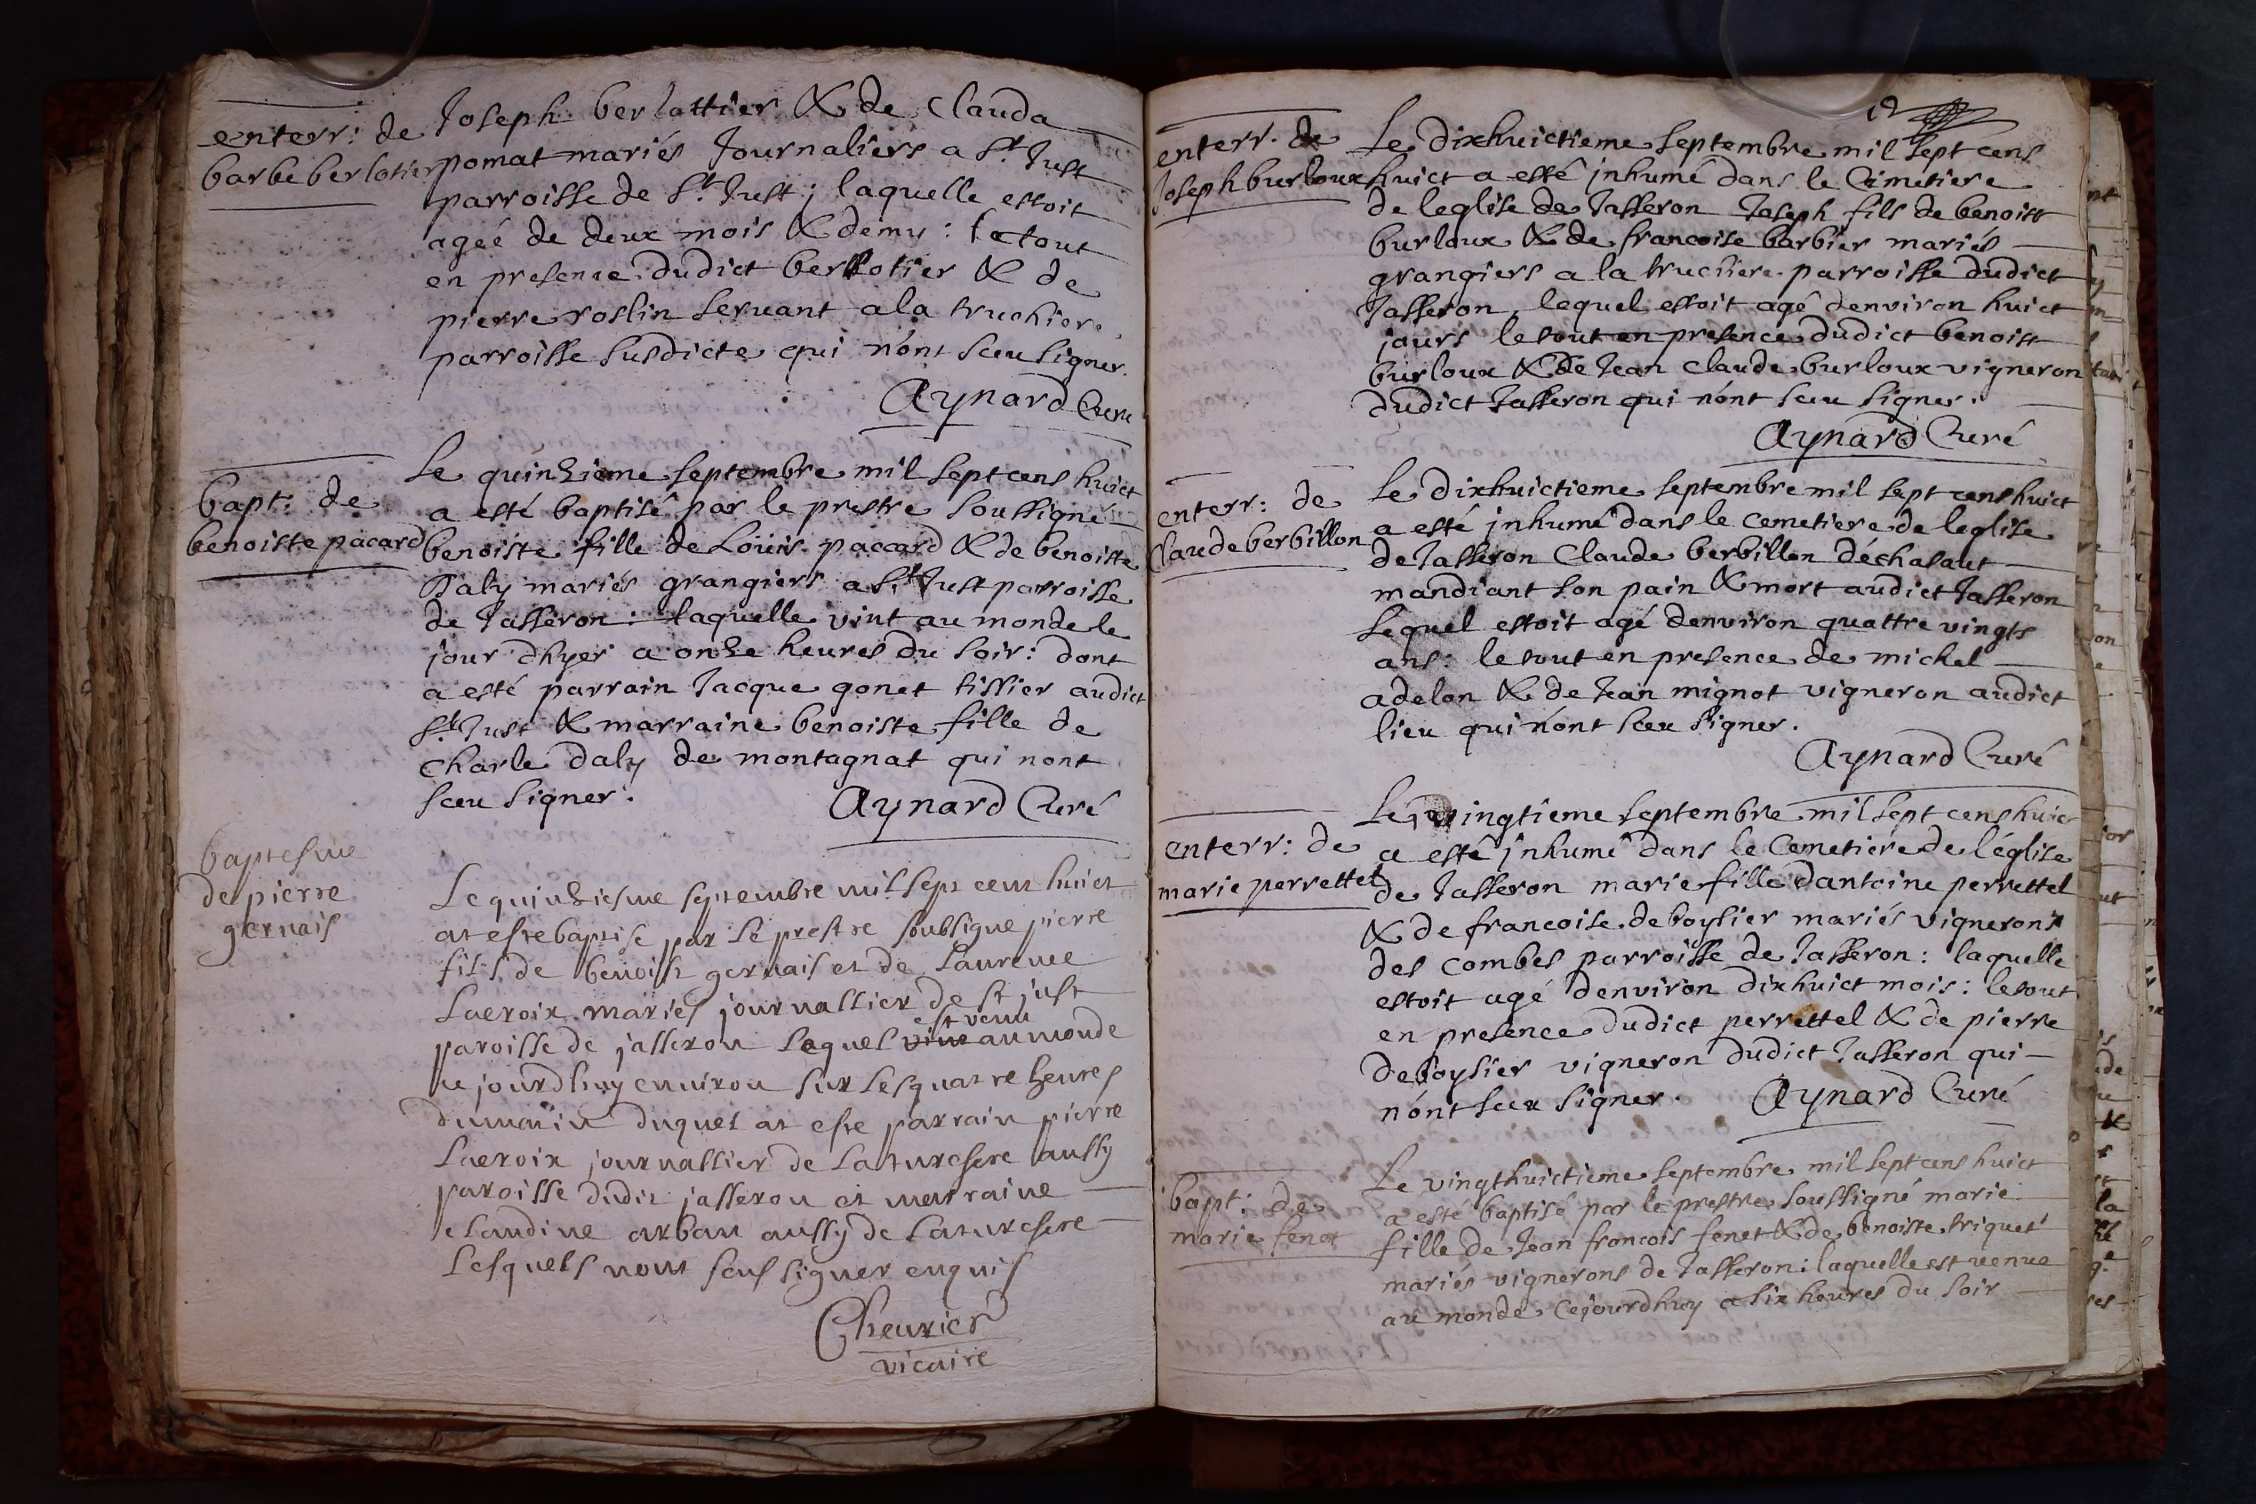 enterr: de
barbe berlotier
Joseph berlattier & de Clauda
pomat mariés Journaliers a St Just
parroisse de St Just ; laquelle estoit
ageé de deux mois & demy : le tout
en presence dudict berllotier & de
pierre roslin servant a la truchiere
parroisse susdicte qui n'ont sceu signer.
Aynard Curé
bapt: de
benoiste pacard
Le quinzieme septembre mil sept cens huict
a esté baptisé par le prestre soussigné
benoiste fille de Loüis paccard & de benoiste
Daly mariés grangiers a St Just parroisse
de Jasseron : laquelle vint au monde le
jour d'hyer a onze heures du soir : dont
a esté parrain Jacque gonet tissier audict
St Just & marraine benoiste fille de
Charle daly de montagnat qui nont
sceu signer.
Aynard Curé
baptesme
de pierre
gervais
Le quinziesme septembre mil sept cent huict
at este baptise par le prestre soubsigne pierre
fils de benoist gervais et de Laurence
Lacroix mariés journallier de st just
est venu
paroisse de jasseron Lequel vint au monde
ce jourdhuy environ sur les quatre heures
du matin duquel at este parrain pierre
Lacroix journallier de La
paroisse dudit jasseron et marraine
claudine arban aussy de La
Lesquels nont seus signer enquis
Chevrier
vicaire
19
enterr. de
Joseph burloux
Le dixhuictieme septembre mil sept cens
huict a esté jnhumé dans le Cimetiere
de leglise de Jasseron Joseph fils de benoist
burloux & de francoise barbier mariés
grangiers a la truchiere parroisse dudict
Jasseron lequel estoit agé denviron huict
jours le tout en presence dudict benoist
burloux & de Jean Claude burloux vigneron
dudict Jasseron qui n'ont sceu signer.
Aynard Curé
enterr: de
Claude berbillon
Le dixhuictieme septembre mil sept cens huict
a esté jnhumé dans le cemetiere de leglise
de Jasseron Claude berbillon déchasaut
mandiant son pain & mort audict Jasseron
Lequel estoit agé denviron quattre vingts
ans : le tout en presence de michel
adelon & de Jean mignot vigneron audict
lieu qui n'ont sceu signer.
Aynard Curé
enterr: de
marie perrettet
Le vingtieme septembre mil sept cens huict
a esté jnhumé dans le Cemetiere de l'églize
de Jasseron marie fille d'antoine perrettel
& de francoise deboysier mariés vignerons
des combes parroisse de Jasseron : laquelle
estoit agé denviron dixhuict mois : le tout
en presence dudict perrettel & de pierre
deboysier vigneron dudict Jasseron qui
n'ont sceu signer. Aynard Curé
bapt: de
marie fenet
Le vingthuictieme septembre mil sept cens huict
a esté baptisé par le prestre soussigné marie
fille de Jean francois fenet & de benoiste triquet
mariés vignerons de Jasseron : laquelle est venue
au monde cejourdhuy a six heures du soir